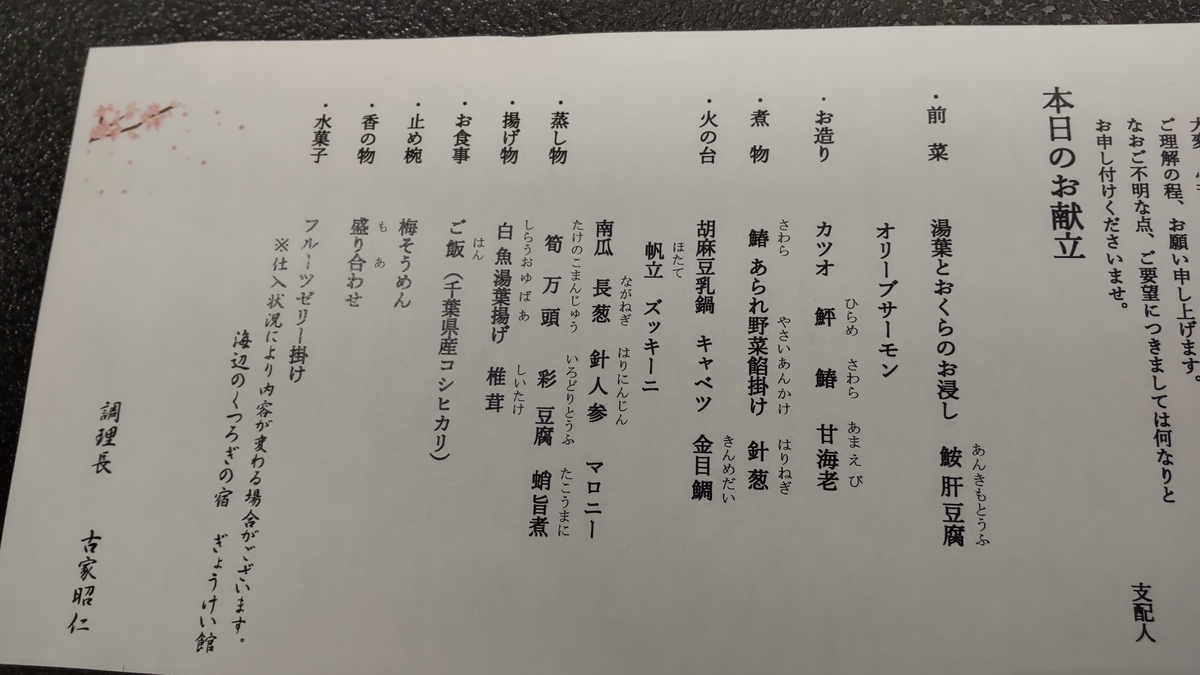 ご理解の程、お願い申し上げます。
なおご不明な点、ご要望につきましては何なりと
お申し付けくださいませ。
支配人
本日のお献立
・前菜 湯葉とおくらのお浸し 鮟肝豆腐
あんきもとうふ
オリーブサーモン
・お造り カツオ 鮃 鰆 甘海老
ひらめ さわら あまえび
・煮物 鰆 あられ野菜餡掛け 針葱
さわら やさいあんかけ はりねぎ
・火の台 胡麻豆乳鍋 キャベツ 金目鯛
きんめだい
帆立 ズッキーニ
ほたて
南瓜 長葱 針人参 マロニー
ながねぎ はりにんじん
・蒸し物 筍万頭 彩豆腐 蛸旨煮
たけのこまんじゅう いろどりとうふ たこうまに
・揚げ物 白魚湯葉揚げ 椎茸
しらうおゆばあ しいたけ
・お食事 ご飯(千葉県産コシヒカリ)
はん
・止め椀 梅そうめん
・香の物 盛り合わせ
も あ
・水菓子 フルーツゼリー掛け
※仕入状況により内容が変わる場合がございます。
海辺のくつろぎの宿 ぎょうけい館
調理長 古家昭仁